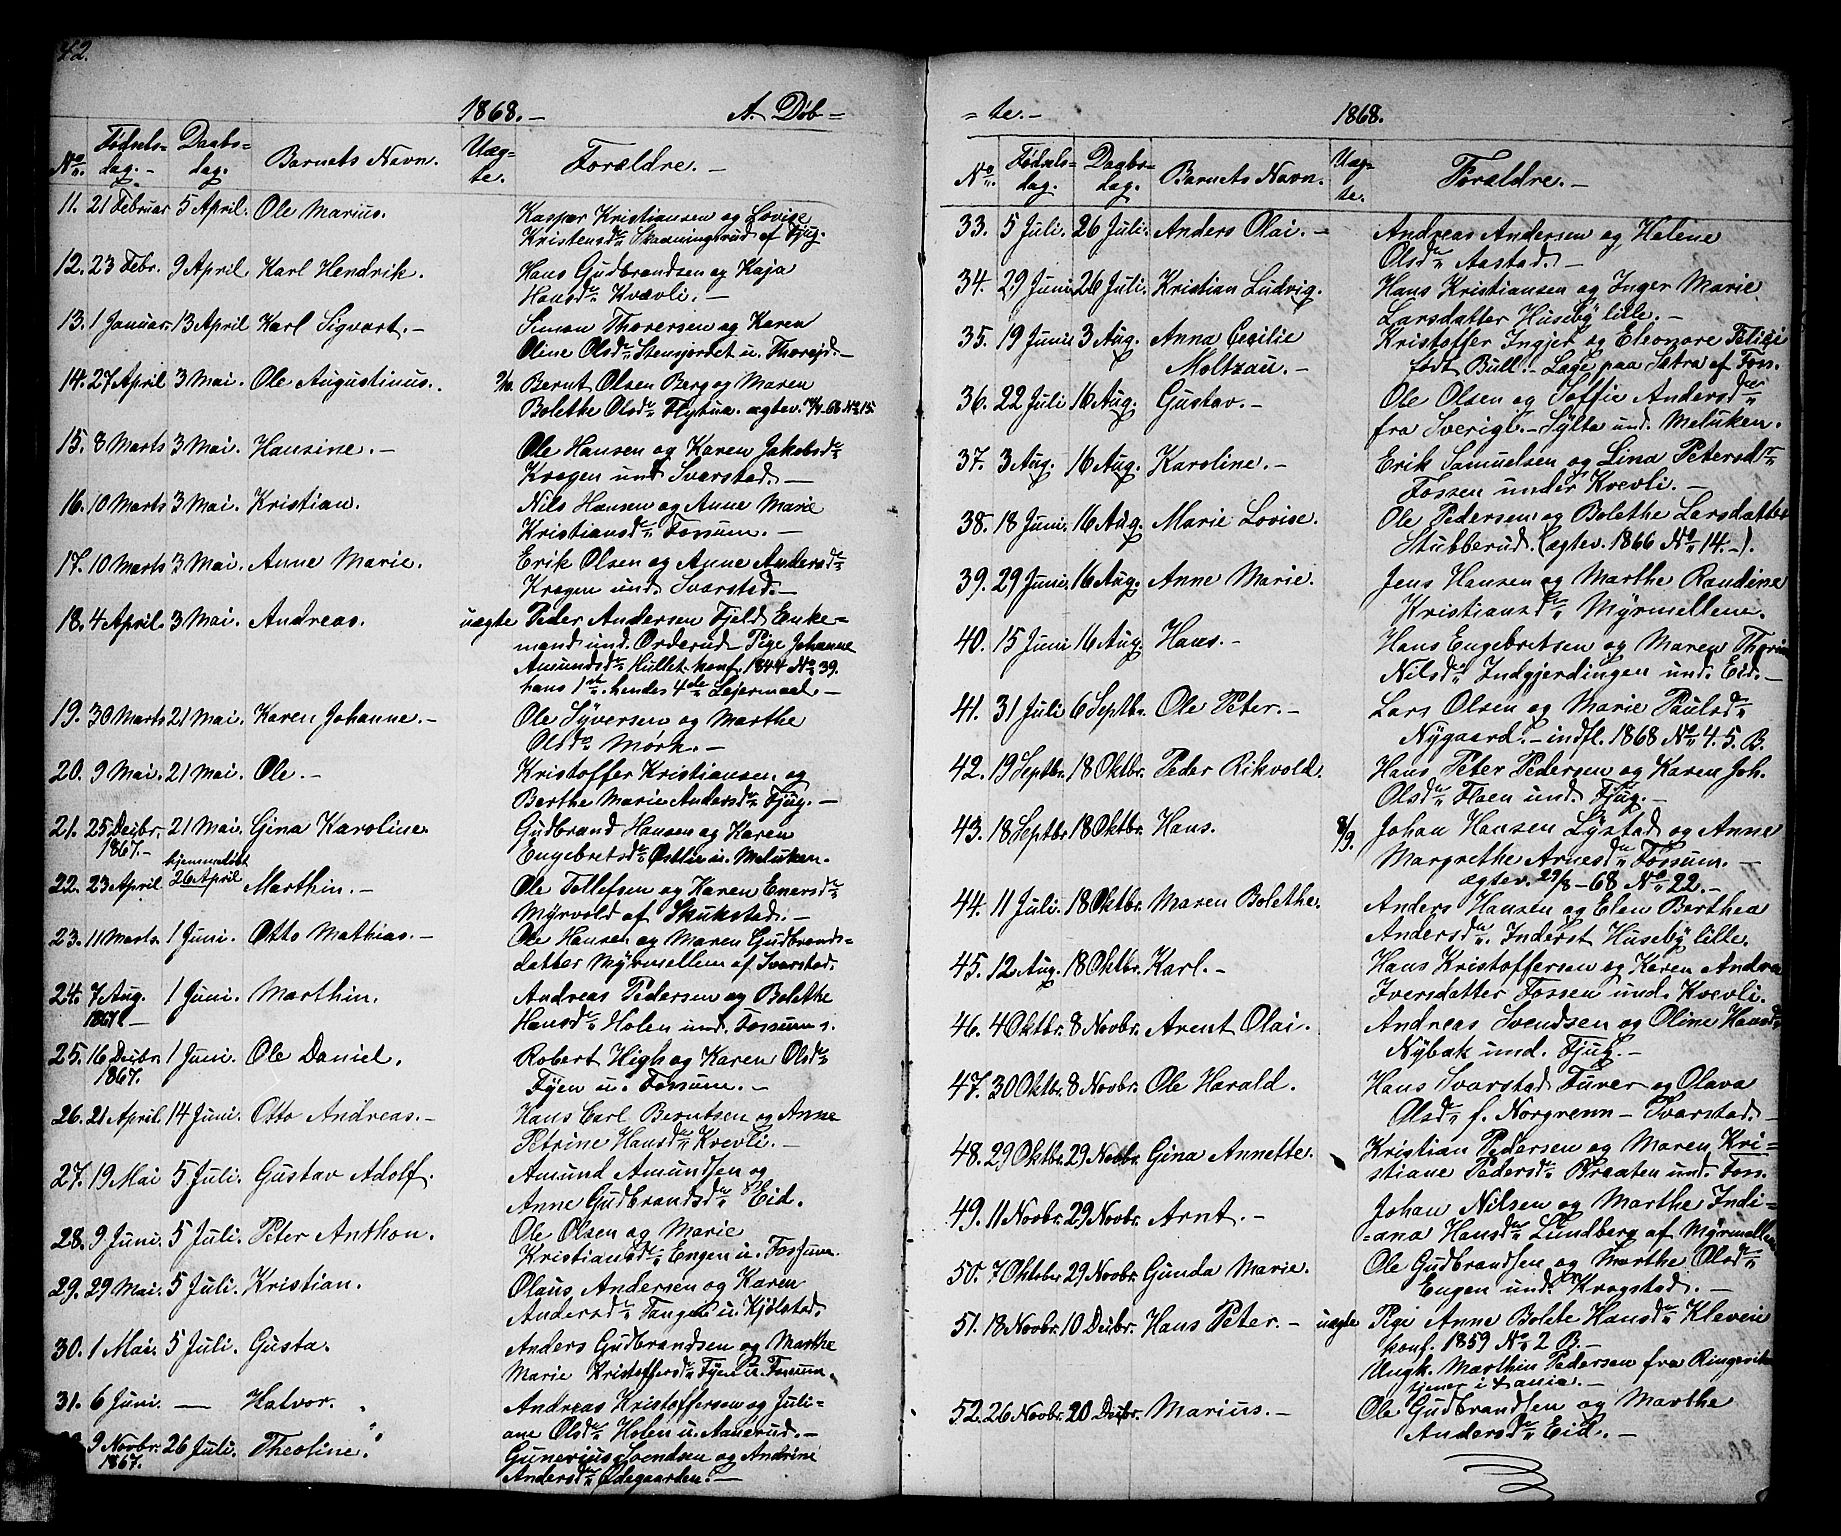 42.
1868. — A. Døb=
No. Fødsels=dag. — Daabs=dag. Barnets Navn. Uæg=te. Forældre. —
11. 21 Februar 5 April. Ole Marius. Kaspar Kristiansen og Lovise
Kristensdr. Skavningsrud af Fjug.
12. 23 Febr. 9 April. Karl Hendrik. Hans Gudbrandsen og Kaja
Hansdr. Kvævli. —
13. 1 Januar. 13 April Karl Sigvart. — Simon Thorersen og Karen
Oline Olsdr. Stensjordet u. Thorejd. —
14. 27 April 3 Mai. Ole Augustinus. Bernt Olsen Berg og Maren
Bolethe Olsdr. Flytua. ægtev. 68 No 15.
15. 8 Marts 3 Mai. Hansine. — Ole Hansen og Karen Jakobsdr.
Kragen und Svarstad. —
16. 10 Marts 3 Mai. Kristian. Nils Hansen og Anne Marie
Kristiansdr. Fossum. —
17. 10 Marts 3 Mai. Anne Marie. Erik Olsen og Anne Andersdr.
Kragen und. Svarstad. —
18. 4 April. 3 Mai. Andreas. uægte Peder Andersen Fjeld Enke=
mand und. Orderud — Pige Johanne
Amundsdr. Hullet konf. 1844 No 39.
hans 1ste hendes 4de Lejermaal —
19. 30 Marts 21 Mai. Karen Johanne. — Ole Syversen og Marthe
Olsdr. Mørk. —
20. 9 Mai. 21 Mai. Ole. — Kristoffer Kristiansen og
Berthe Marie Andersdr. Fjug. —
21. 25 Decbr. 21 Mai. Gina Karoline. Gudbrand Hansen og Karen
1867. — Engebretsdr. Østlie u. Meluken.
hjemmedøbt
22. 23 April 26 April Marthin. — Ole Tollefsen og Karen Enersdr.
Myrvold af Skukstad. —
23. 11 Marts. 1 Juni. Otto Mathias. — Ole Hansen og Maren Gudbrands=
datter Myrmellem af Svarstad.
24. 7 Aug. 1 Juni. Marthin. Andreas Pedersen og Bolethe
1867. — Hansdr. Holen und. Fossum.
25. 16 Decbr. 1 Juni. Ole Daniel. Robert High og Karen Olsdr.
1867. Fyen u. Fossum. —
26. 21 April. 14 Juni. Otto Andreas. — Hans Carl Berntsen og Anne
Petrine Hansdr. Krevli. —
27. 19 Mai 5 Juli. Gustav Adolf. Amund Amundsen og
Anne Gudbrandsdr. Eid.
28. 9 Juni. 5 Juli. Peter Anthon. Ole Olsen og Marie
Kristiansdr. Engen u. Fossum.
29. 29 Mai. 5 Juli. Kristian. Olaus Andersen og Karen
Andersdr. Tangen u. Kjølstad.
30. 1 Mai. 5 Juli. Gusta. Anders Gudbrandsen og Marthe
Marie Kristoffersdr. Fyen u. Fossum.
31. 6 Juni. — Halvor. Andreas Kristoffersen og Juli=
ane Olsdr. Holen u. Aanerud. —
9 Novbr. 26 Juli. Theoline. Gunerius Svendsen og Andrine
1867. Andersdr. Ødegaarden. —
= te. — 1868.
No. Fødsels=dag. Daabs=dag. Barnets Navn. Uæg=te. Forældre. —
33. 5 Juli. 26 Juli. Anders Olai. — Andreas Andersen og Helene
Olsdr. Aastad. —
34. 29 Juni 26 Juli. Kristian Ludvig. Hans Kristiansen og Inger Marie
Larsdatter Huseby lille. —
35. 19 Juni 3 Aug. Anna Cecilie Kristoffer Ingjer og Eleonore Felici
Moltzau. — født Bull. — Lage paa Sætra af Foss.
36. 22 Juli 16 Aug. Gustav. — Ole Olsen og Soffie Andersdr.
fra Sverige. — Sylta und. Meluken.
37. 3 Aug. 16 Aug. Karoline. — Erik Samuelsen og Lina Petersdr.
Fossen under Krevli. —
38. 18 Juni. 16 Aug. Marie Lovise. Ole Pedersen og Bolethe Larsdatter
Stubberud. (ægtev. 1866 No 14. —).
39. 29 Juni 16 Aug. Anne Marie. Jens Hansen og Marthe Randine
Kristiansdr. Myrmellem.
40. 15 Juni 16 Aug. Hans. — Hans Engebretsen og Maren Thorin
Nilsdr. Indgjerdingen und. Eid. —
41. 31 Juli 6 Septbr. Ole Peter. — Lars Olsen og Marie Paulsdr.
Nygaard. — indfl. 1868 No 4. 5. B.
42. 19 Septbr. 18 Oktbr. Peder Rikvold. Hans Peter Pedersen og Karen Joh.
Olsdr. Flaen und. Fjug. —
43. 18 Septbr. 18 Oktbr. Hans. 8/9. Johan Hansen Lystad og Anne
Margrethe Arnesdr. Fossum. —
ægtev. 29/8 — 68 No 22. —
44. 11 Juli. 18 Oktbr. Maren Bolethe. Anders Hansen og Elen Berthea
Andersdr. Inderst Huseby lille.
45. 12 Aug. 18 Oktbr. Karl. — Hans Kristoffersen og Karen Andrea
Iversdatter Fossen und. Kvevli.
46. 4 Oktbr. 8 Novbr. Arent Olai. Andreas Svendsen og Oline Hansdr.
Nybak und. Fjug. —
47. 30 Oktbr. 8 Novbr. Ole Harald. Hans Svarstad Furer og Olava
Olsdr. f. Norgrenn — Svarstad.
48. 29 Oktbr. 29 Novbr. Gina Annette. Kristian Pedersen og Maren Kri=
stiane Pedersdr. Braaten und. Foss.
49. 11 Novbr. 29 Novbr. Arnt. — Johan Nilsen og Marthe Indi=
=ana Hansdr. Lundberg af Myrmellem
50. 7 Oktober 29 Novbr. Gunda Marie. Ole Gudbrandsen og Marthe Olsdr.
Engen und. Kragstad. —
51. 18 Novbr. 10 Decbr. Hans Peter. — uægte Pige Anne Bolete Hansdr. Kleven
konf. 1859 No 2 B. —
Ungk. Marthin Pedersen fra
tjener i
52. 26 Novbr. 20 Decbr. Marius. — Ole Gudbrandsen og Marthe
Andersdr. Eid. —